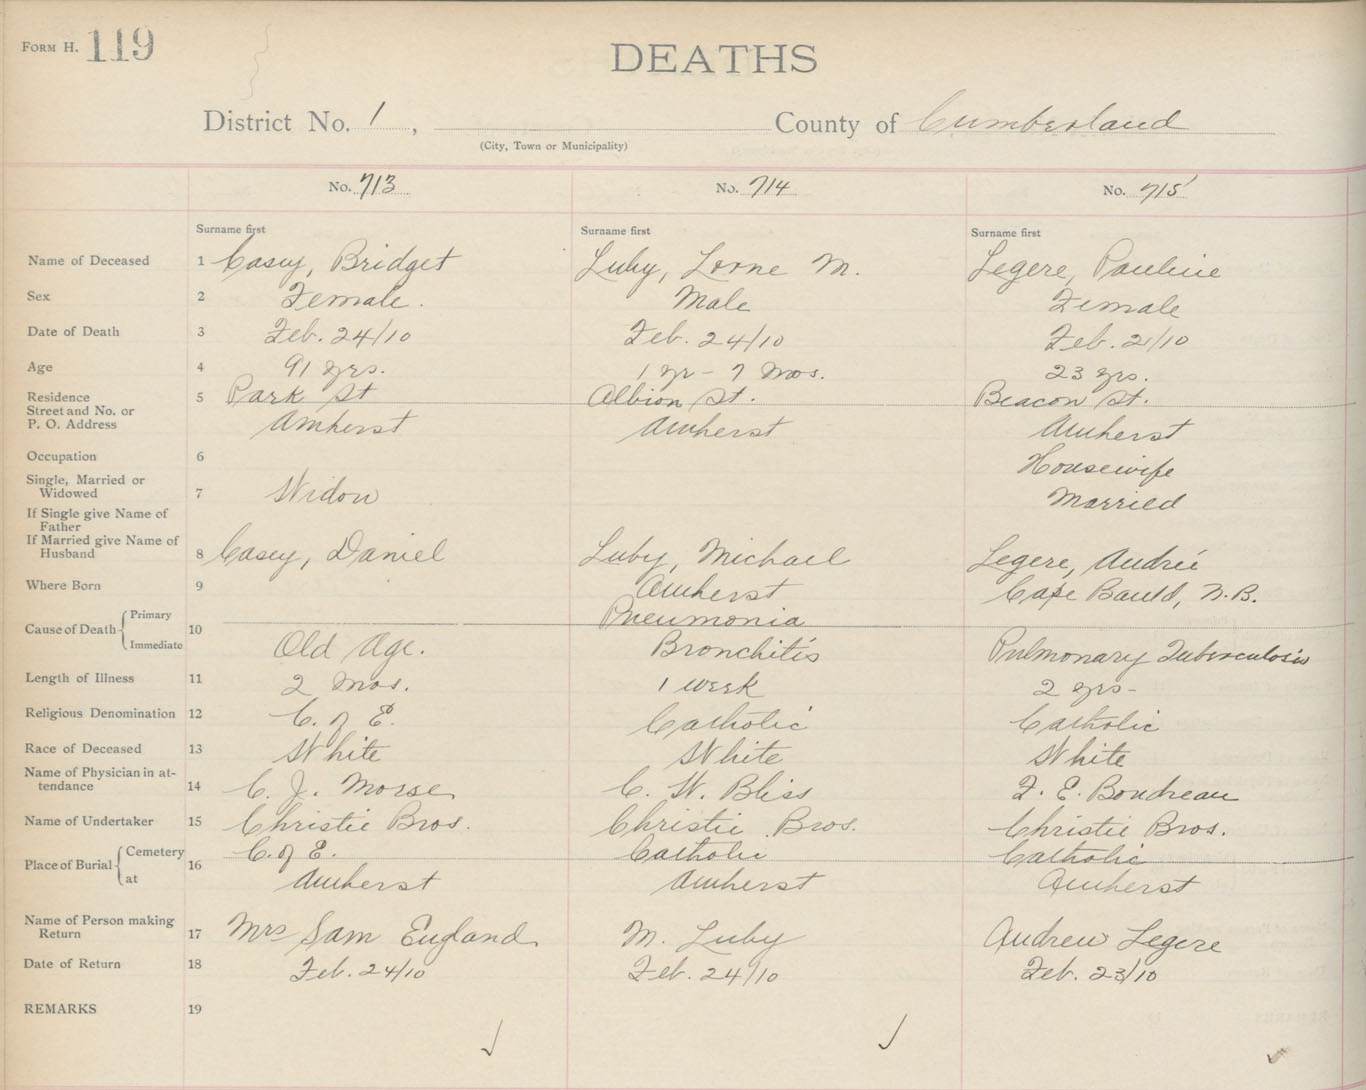 FORM H. 119
DEATHS
District No. 1, County of Cumberland
(City, Town or Municipality)
No. 713 No. 714 No. 715
Surname first Surname first Surname first
Name of Deceased 1 Casey, Bridget Luby, Lorne M. Legere, Pauline
Sex 2 Female. Male Female
Date of Death 3 Feb. 24/10 Feb. 24/10 Feb. 21/10
Age 4 91 yrs. 1 yr - 7 mos. 23 yrs.
Residence 5 Park St Albion St. Beacon St.
Street and No. or
P. O. Address Amherst Amherst Amherst
Occupation 6 Housewife
Single, Married or
Widowed 7 Widow Married
If Single give Name of
Father
If Married give Name of
Husband 8 Casey, Daniel Luby, Michael Legere, Andreé
Where Born 9 Amherst Cape Bauld, N.B.
Cause of Death Primary 10 Pneumonia
Immediate Old Age. Bronchitis Pulmonary Tuberculosis
Length of Illness 11 2 mos. 1 week 2 yrs-
Religious Denomination 12 C. of E. Catholic Catholic
Race of Deceased 13 White White White
Name of Physician in at-
tendance 14 C. J. Morse C. W. Bliss F. E. Boudreau
Name of Undertaker 15 Christie Bros. Christie Bros. Christie Bros.
Place of Burial Cemetery 16 C. of E. Catholic Catholic
at Amherst Amherst Amherst
Name of Person making
Return 17 Mrs Sam England M. Luby Andrew Legere
Date of Return 18 Feb. 24/10 Feb. 24/10 Feb. 23/10
REMARKS 19